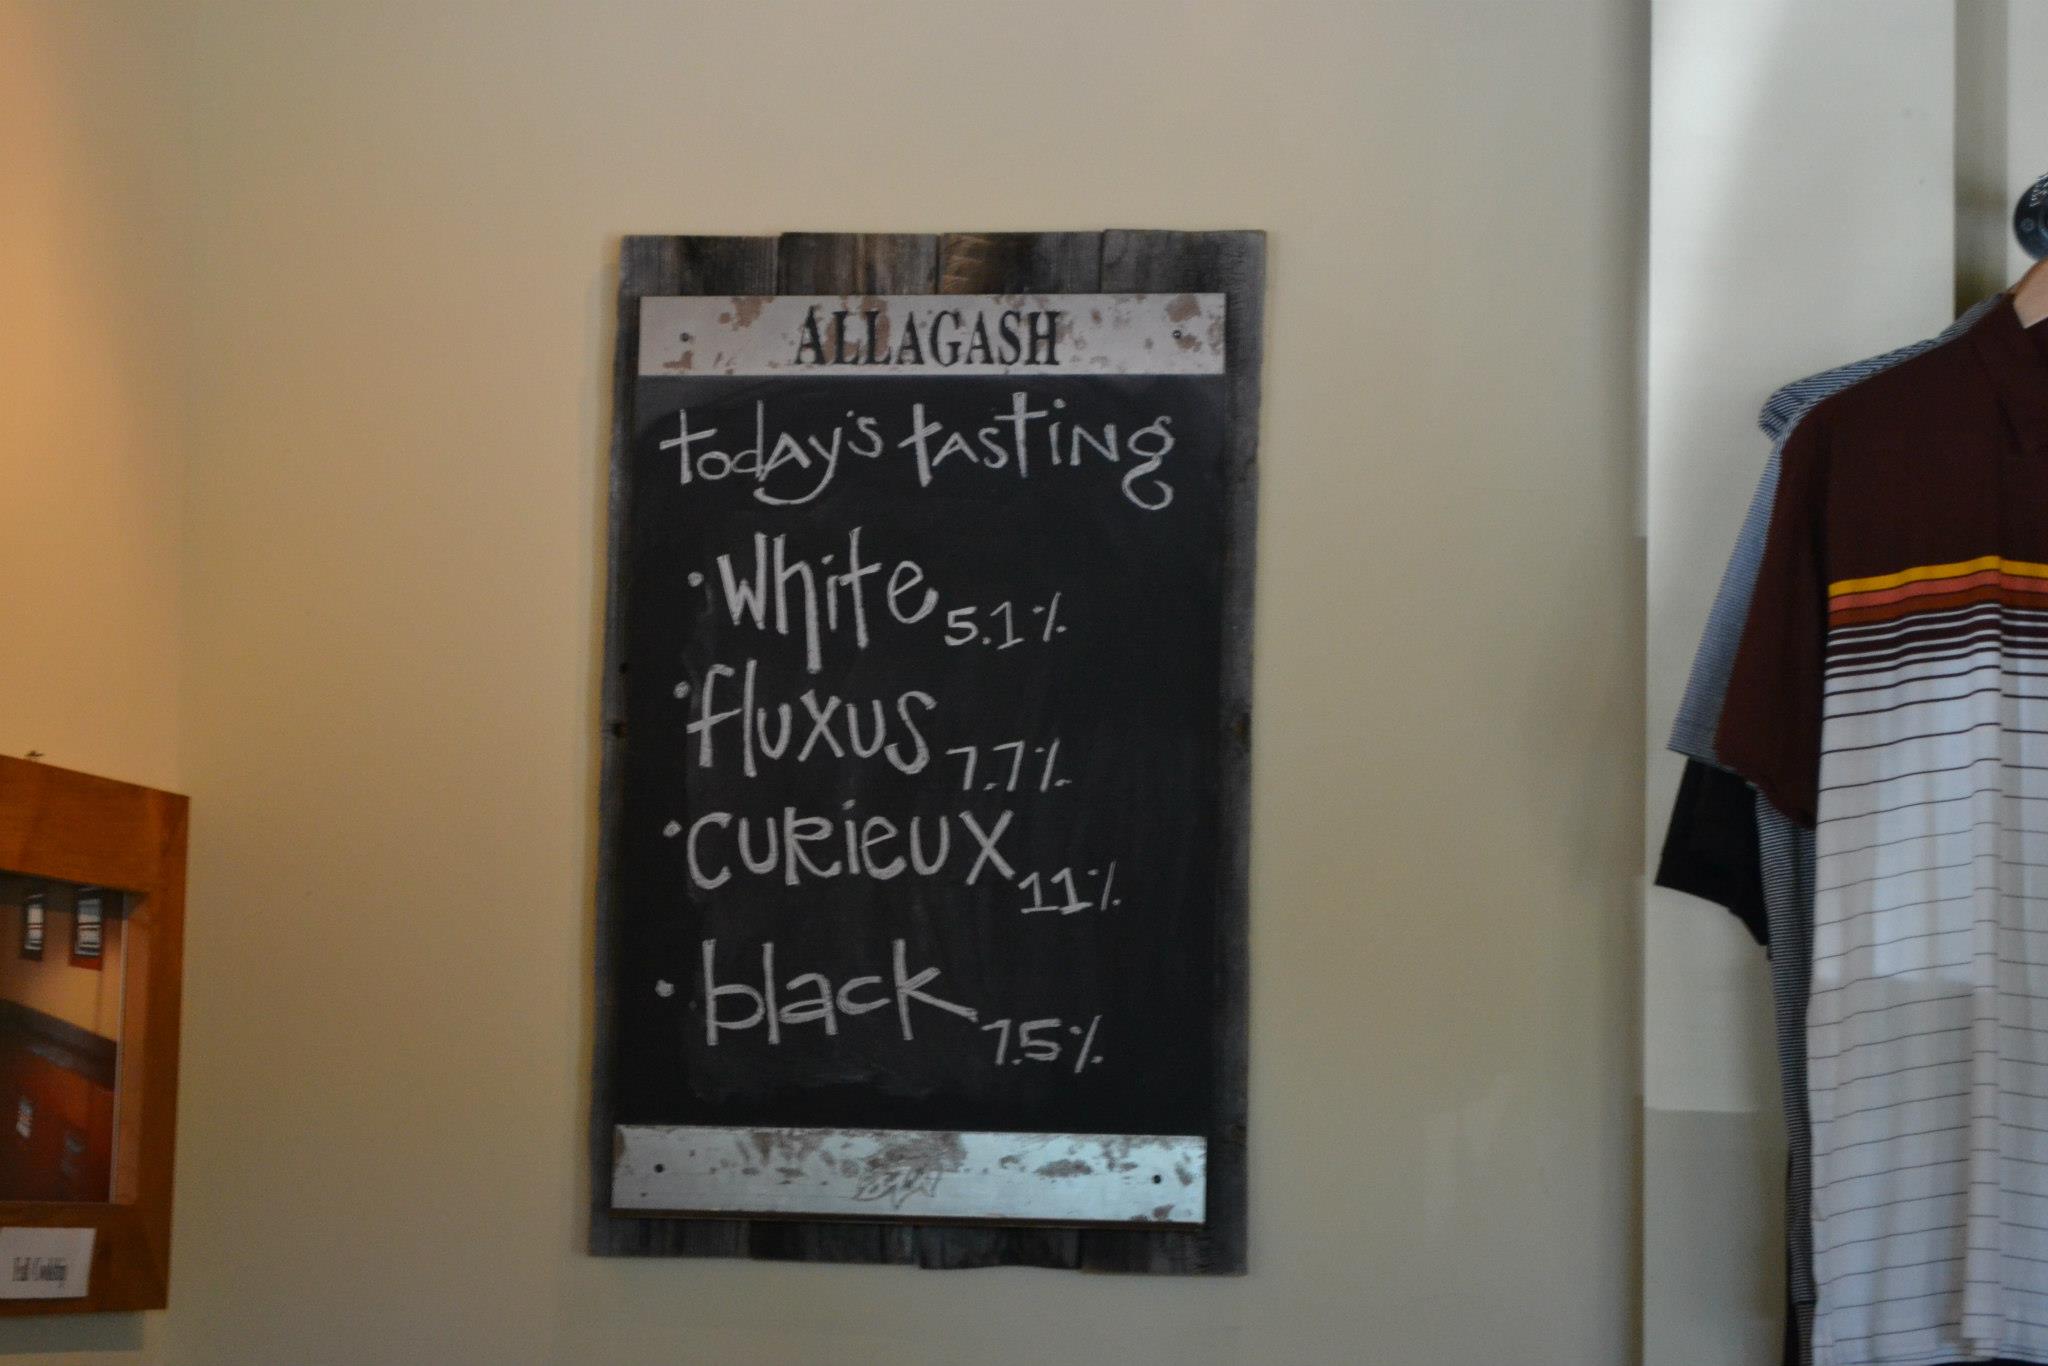 ALLAGASH
today's tasting
• White 5.1%
• fluxus 7.7%
• curieux 11%
• black 7.5%